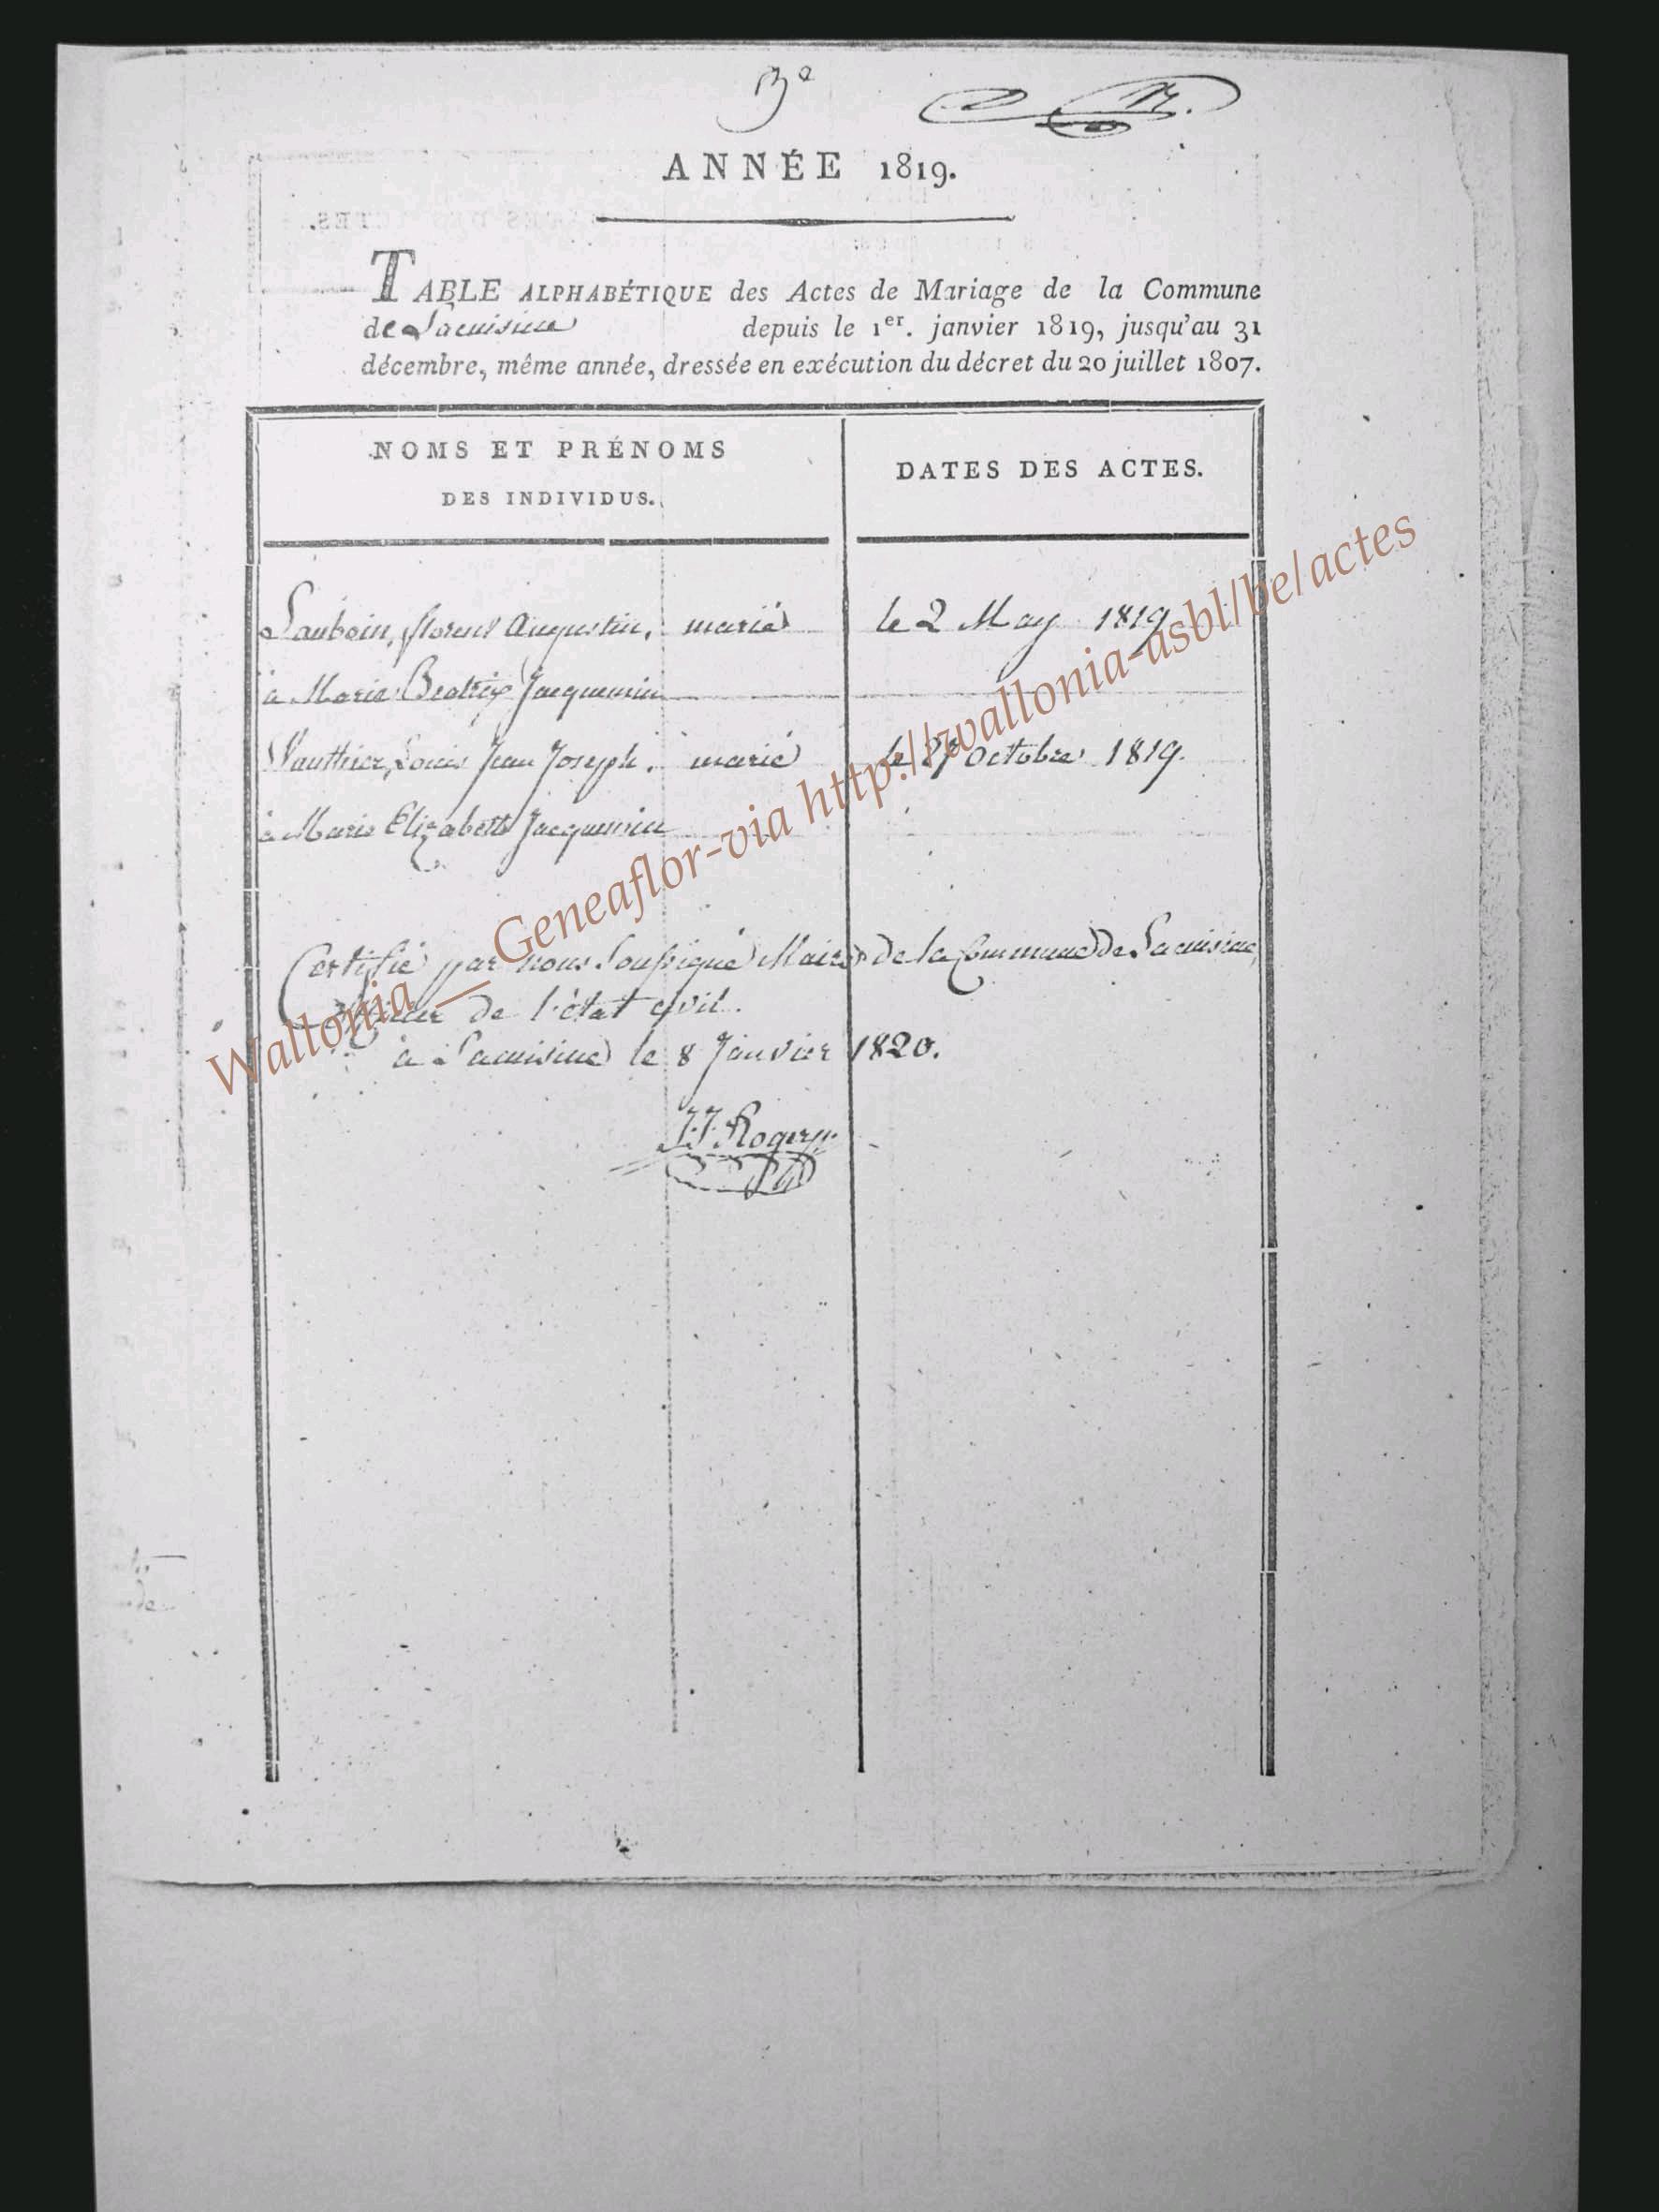 ANNÉE 1819.
TABLE ALPHABÉTIQUE des Actes de Mariage de la Commune
de Lacuisine depuis le 1er. janvier 1819, jusqu'au 31
décembre, même année, dressée en exécution du décret du 20 juillet 1807.
NOMS ET PRÉNOMS
DES INDIVIDUS.
DATES DES ACTES.
Lauboin, florent Augustin, marié le 2 May 1819
à Marie Beatrix Jacquemin
Vauthier, Louis Jean Joseph, marié le 27 Octobre 1819.
à Marie Elizabeth Jacquemin
Certifié par nous Soussigné Maire de la Commune de Lacuisine,
officier de l'état civil.
à Lacuisine le 8 Janvier 1820.
J.J. Rogery
Wallonia — Geneaflor-via http://wallonia-asbl/be/actes